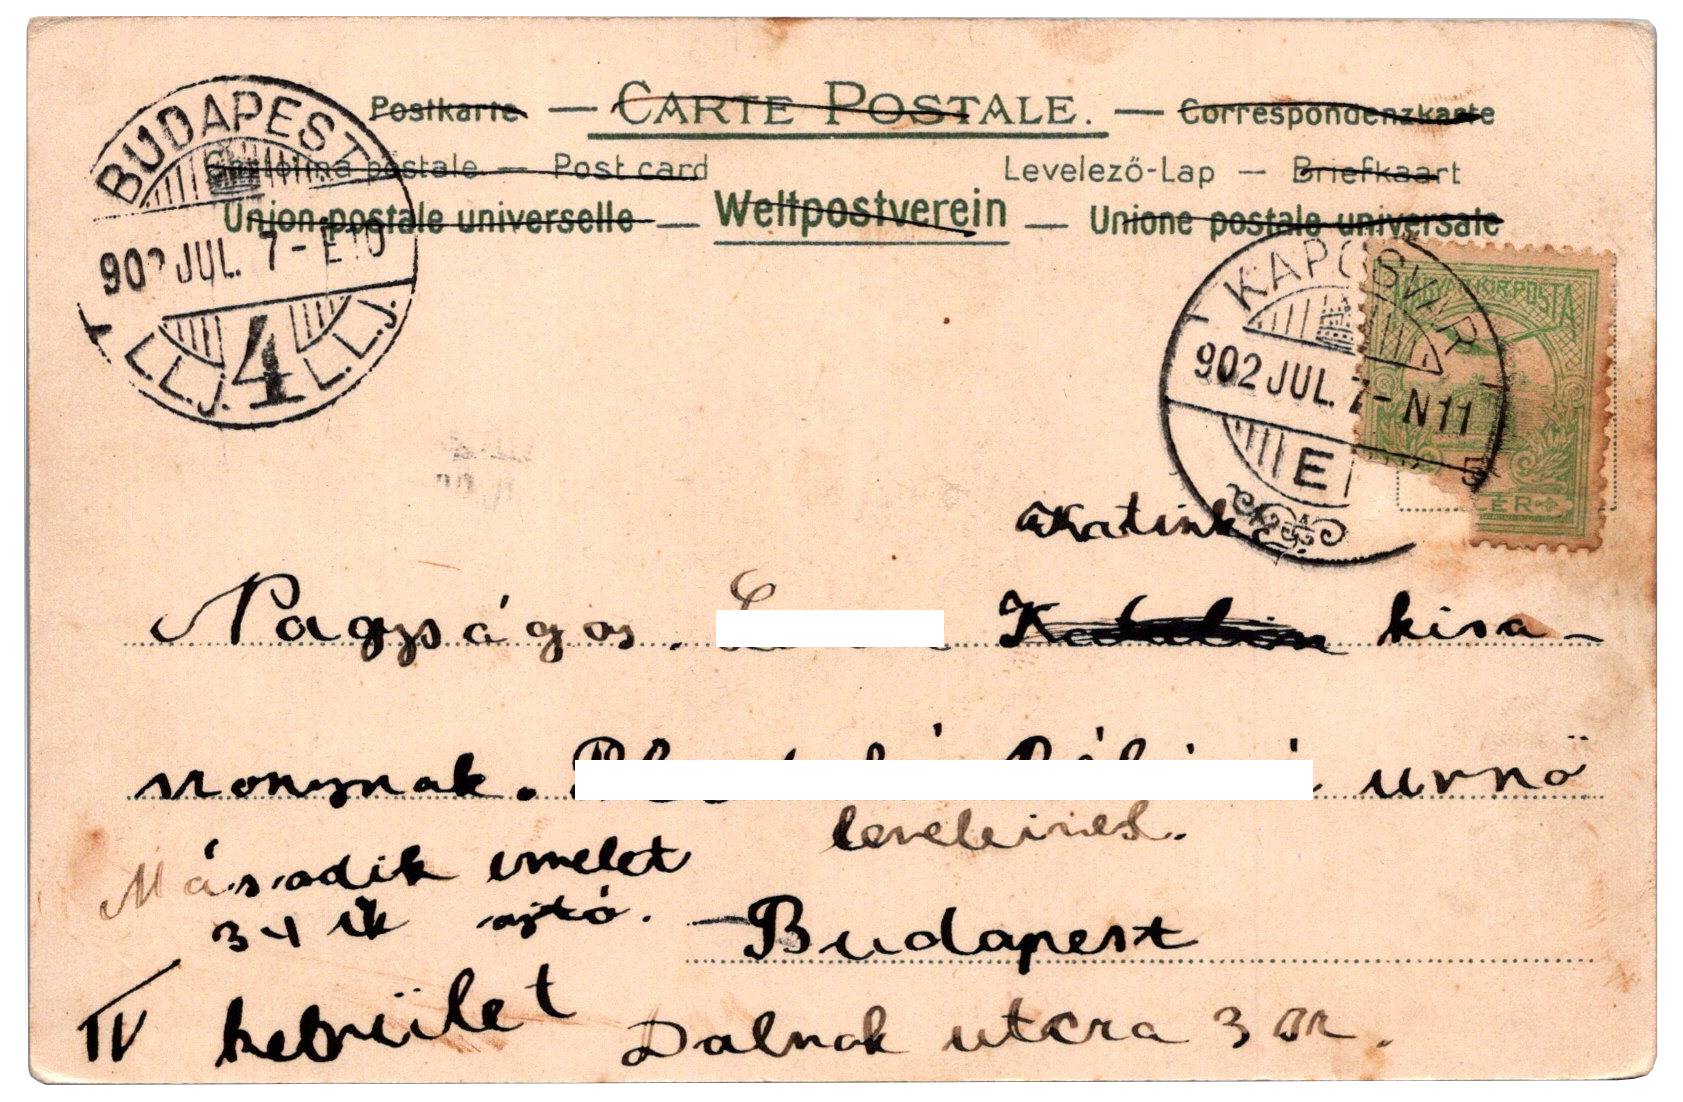 Postkarte — CARTE POSTALE. — Correspondenzkarte
Cartolina postale — Post card Levelező-Lap — Briefkaart
Union postale universelle — Weltpostverein — Unione postale universale
BUDAPEST
902 JUL. 7 - E10
4
KAPOSVÁR
902 JUL. 7 - N11
E
MAGYAR KIR. POSTA
5
Katinka
Nagyságos. Katalin kisa-
nonynak. urnő
leveleivel.
Második emelet
34 ik ajtó. Budapest
IV kebrület Dalnok utcra 3 sz.